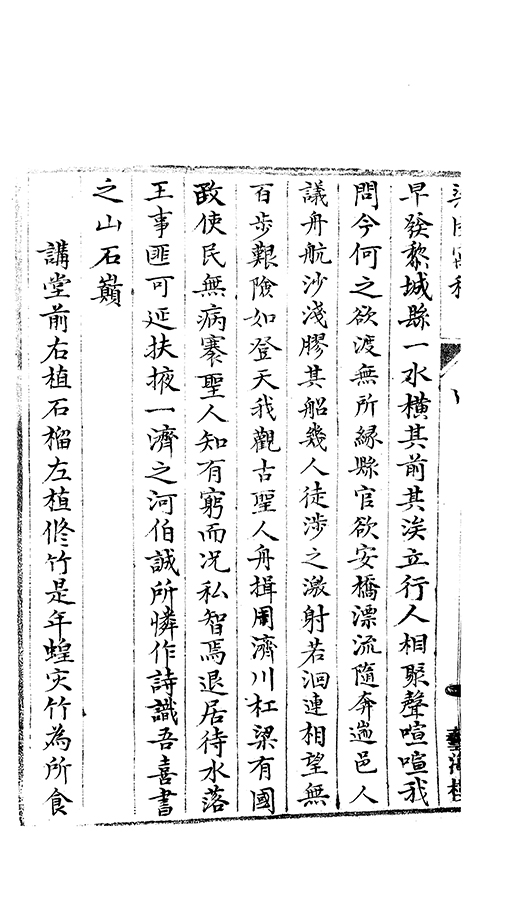 早發黎城縣一水橫其前其涘立行人相聚聲喧喧我
問今何之欲渡無所緣縣官欲安橋漂流隨奔遄邑人
議舟航沙淺膠其船幾人徒涉之激射若洄連相望無
百步艱險如登天我觀古聖人舟揖周濟川杠梁有國
政使民無病褰聖人知有窮而况私智焉退居待水落
王事匪可延扶掖一濟之河伯誠所憐作詩識吾喜書
之山石巔
講堂前右植石榴左植脩竹是年蝗灾竹為所食